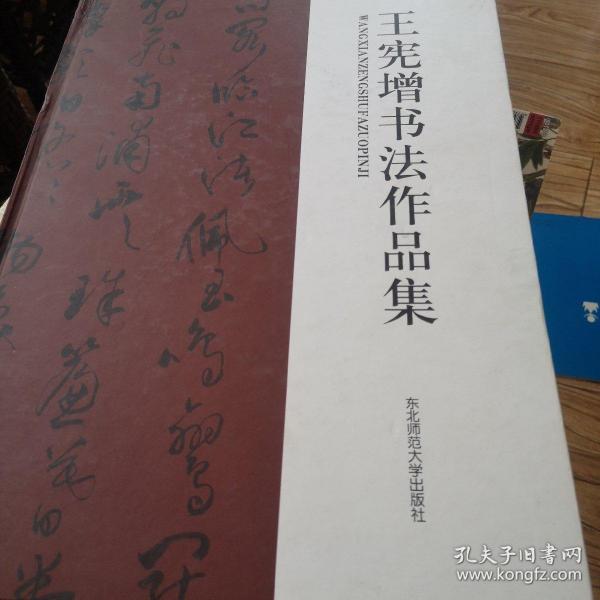 王宪增书法作品集
WANGXIANZENGSHUFAZUOPINJI
东北师范大学出版社
临江渚佩玉鸣鸾
飞南浦云珠帘暮
孔夫子旧书网
www.kongfz.com